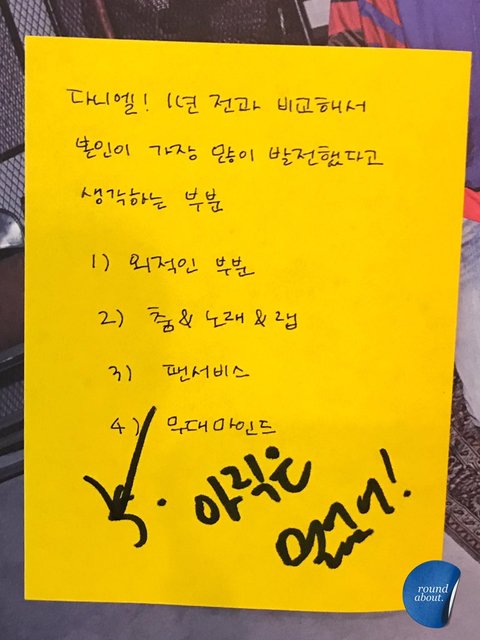 다니엘! 1년 전과 비교해서
본인이 가장 많이 발전했다고
생각하는 부분
1) 외적인 부분
2) 춤&노래&랩
3) 팬서비스
4) 무대마인드
5. 아직은
없어!
round
about.